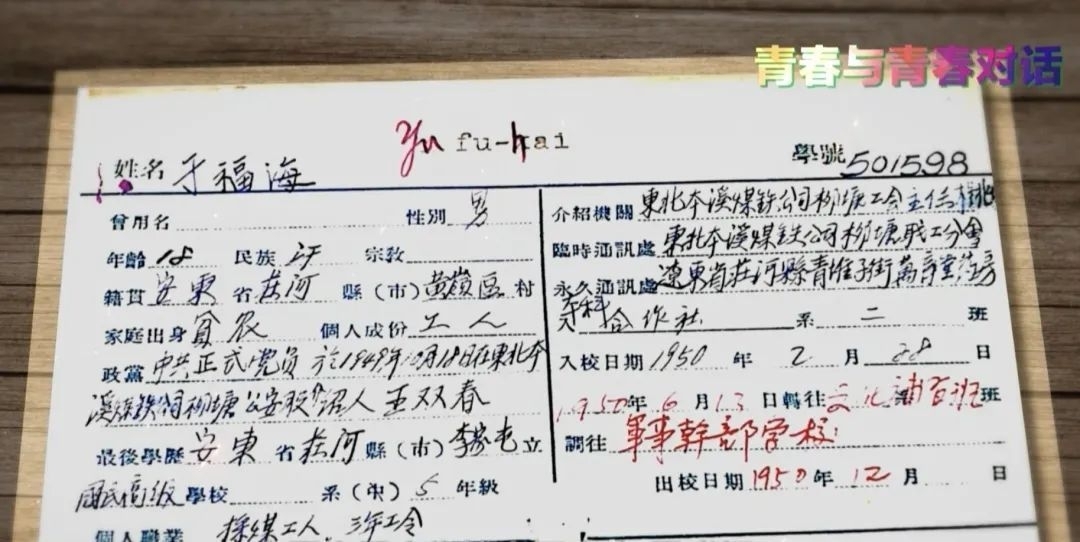 青春与青春对话
Yu fu-hai
姓名 于福海
學號 501598
曾用名 性別 男
年齡 18 民族 汉 宗教
籍貫 安東 省 莊河 縣(市) 黄嶺區 村
家庭出身 貧农 個人成份 工人
政黨 中共正式党员 於1949年10月18日在東北本
溪煤鉄公司柳塘公安股 介绍人 王双春
最後學歷 安東 省 莊河 縣(市) 李家屯 立
国民高级 學校 系(科) 5 年級
個人職業 採煤工人 三年工令
介紹機關 東北本溪煤鉄公司柳塘工会主任
臨時通訊處 東北本溪煤鉄公司柳塘職工分會
永久通訊處 遼東省莊河縣青堆子街萬育堂药房
本科 合作社 系 二 班
入校日期 1950 年 2 月 28 日
1950 年 6 月 13 日轉往 文化補習班 班
調往 軍事幹部学校
出校日期 1950 年 12 月 日